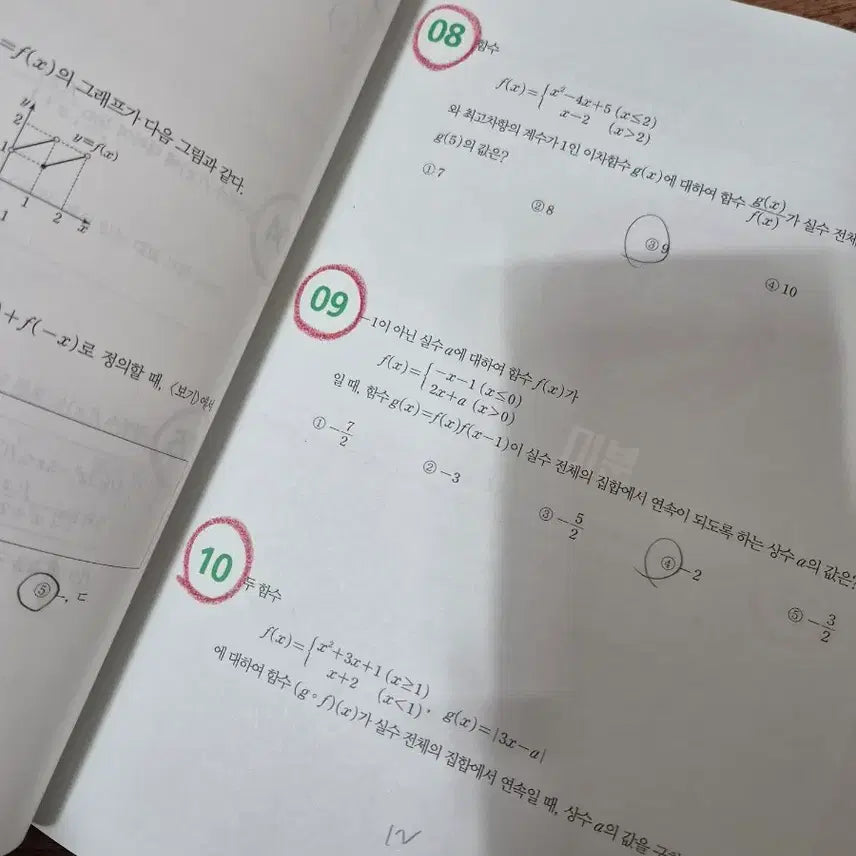 =f(x)의 그래프가 다음 그림과 같다.
y
2
y=f(x)
1
1 2 x
+f(-x)로 정의할 때, <보기>에서
⑤ ㄷ
08 함수
f(x)={x²-4x+5 (x≤2)
x-2 (x>2)
와 최고차항의 계수가 1인 이차함수 g(x)에 대하여 함수 g(x)/f(x)가 실수 전체
g(5)의 값은?
① 7
② 8
③ 9
④ 10
09 -1이 아닌 실수 a에 대하여 함수 f(x)가
f(x)={-x-1 (x≤0)
2x+a (x>0)
일 때, 함수 g(x)=f(x)f(x-1)이 실수 전체의 집합에서 연속이 되도록 하는 상수 a의 값은?
① -7/2
② -3
③ -5/2
④ -2
⑤ -3/2
10 두 함수
f(x)={x²+3x+1 (x≥1)
x+2 (x<1), g(x)=|3x-a|
에 대하여 함수 (g∘f)(x)가 실수 전체의 집합에서 연속일 때, 상수 a의 값을
12